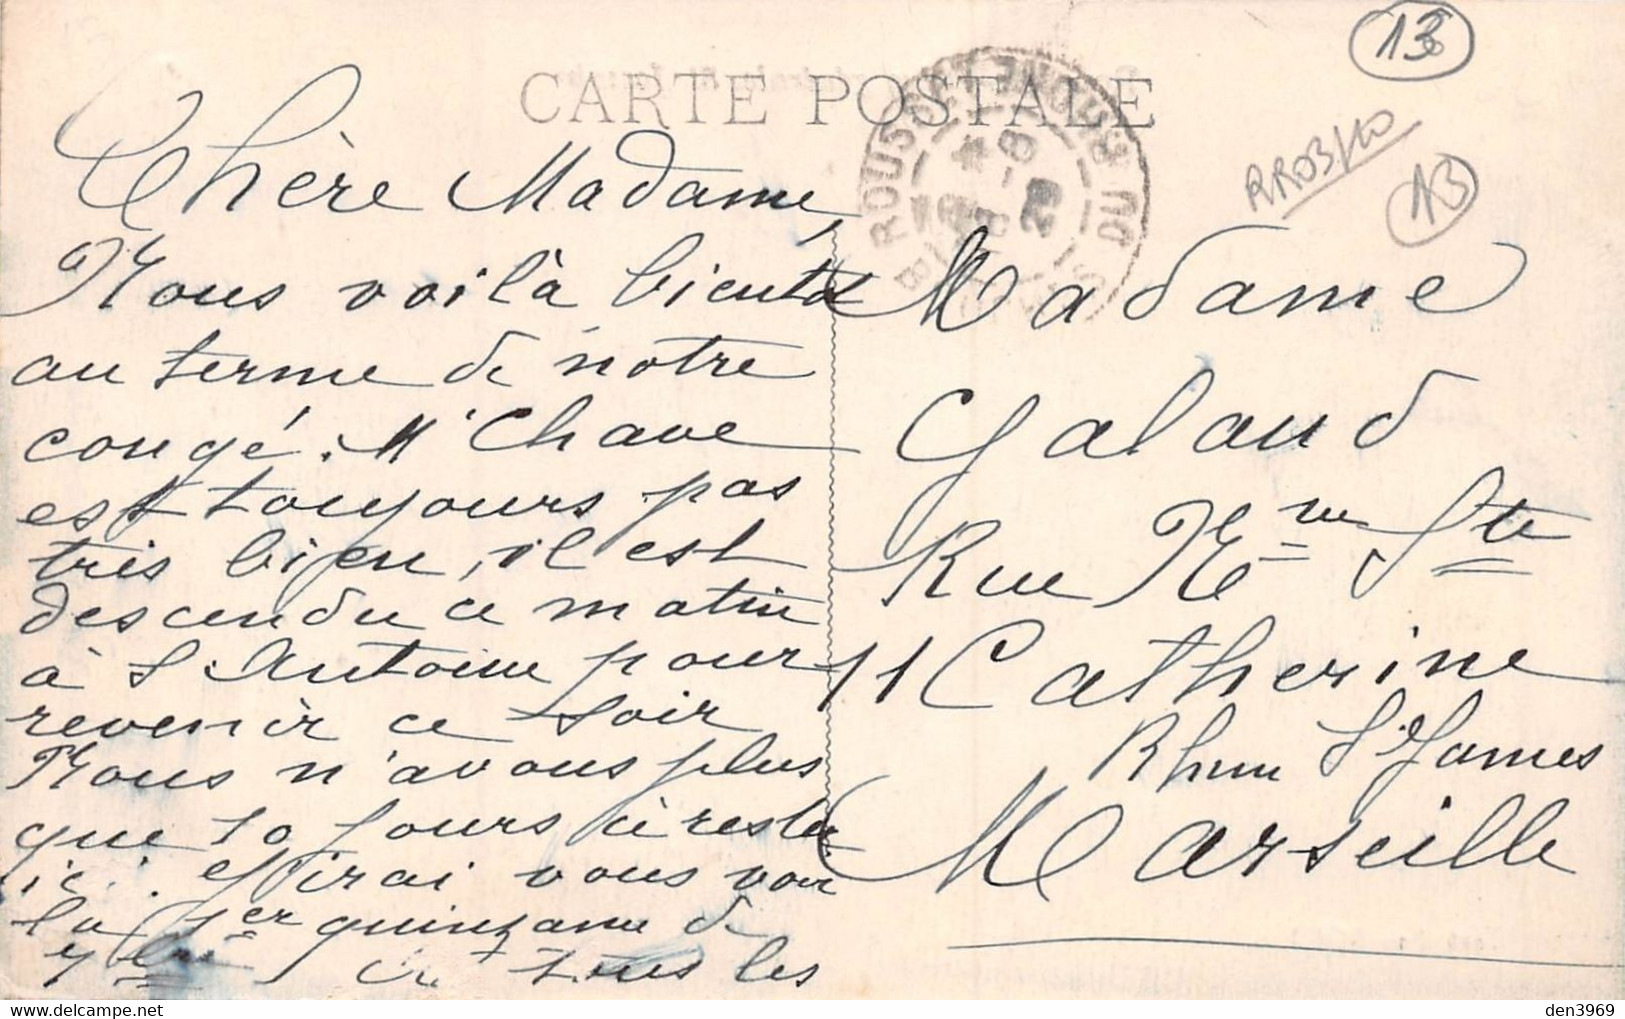 CARTE POSTALE
13
RR03/10
13
ROUSS DU RHONE
29
Chère Madame,
Nous voilà bientot
au terme de notre
congé. Mr Chave
est toujours pas
très bien, il est
descendu ce matin
à St Antoine pour
revenir ce soir
Nous n'avons plus
que 10 jours à rester
ici. J'irai vous voir
la 1er quinzaine de
7bre
tous les
Madame
Galaud
Rue Nve Ste
11 Catherine
Rhum St James
Marseille
den3969